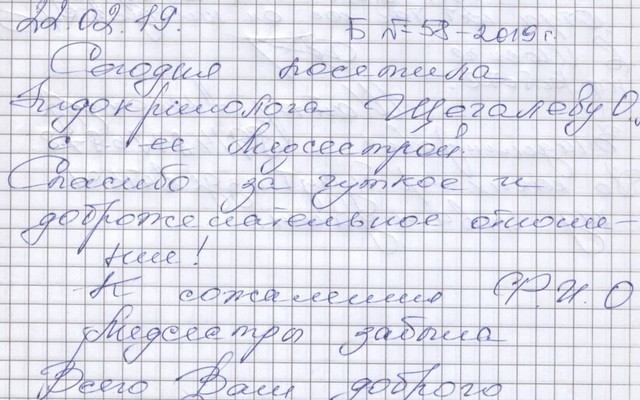 22.02.19. Б №58-2019г.
Сегодня посетила
Эндокринолога Щегалеву О.
с ее медсестрой.
Спасибо за чуткое и
доброжелательное отноше-
ние!
К сожалению Ф.И.О
Медсестры забыла
Всего Вам доброго